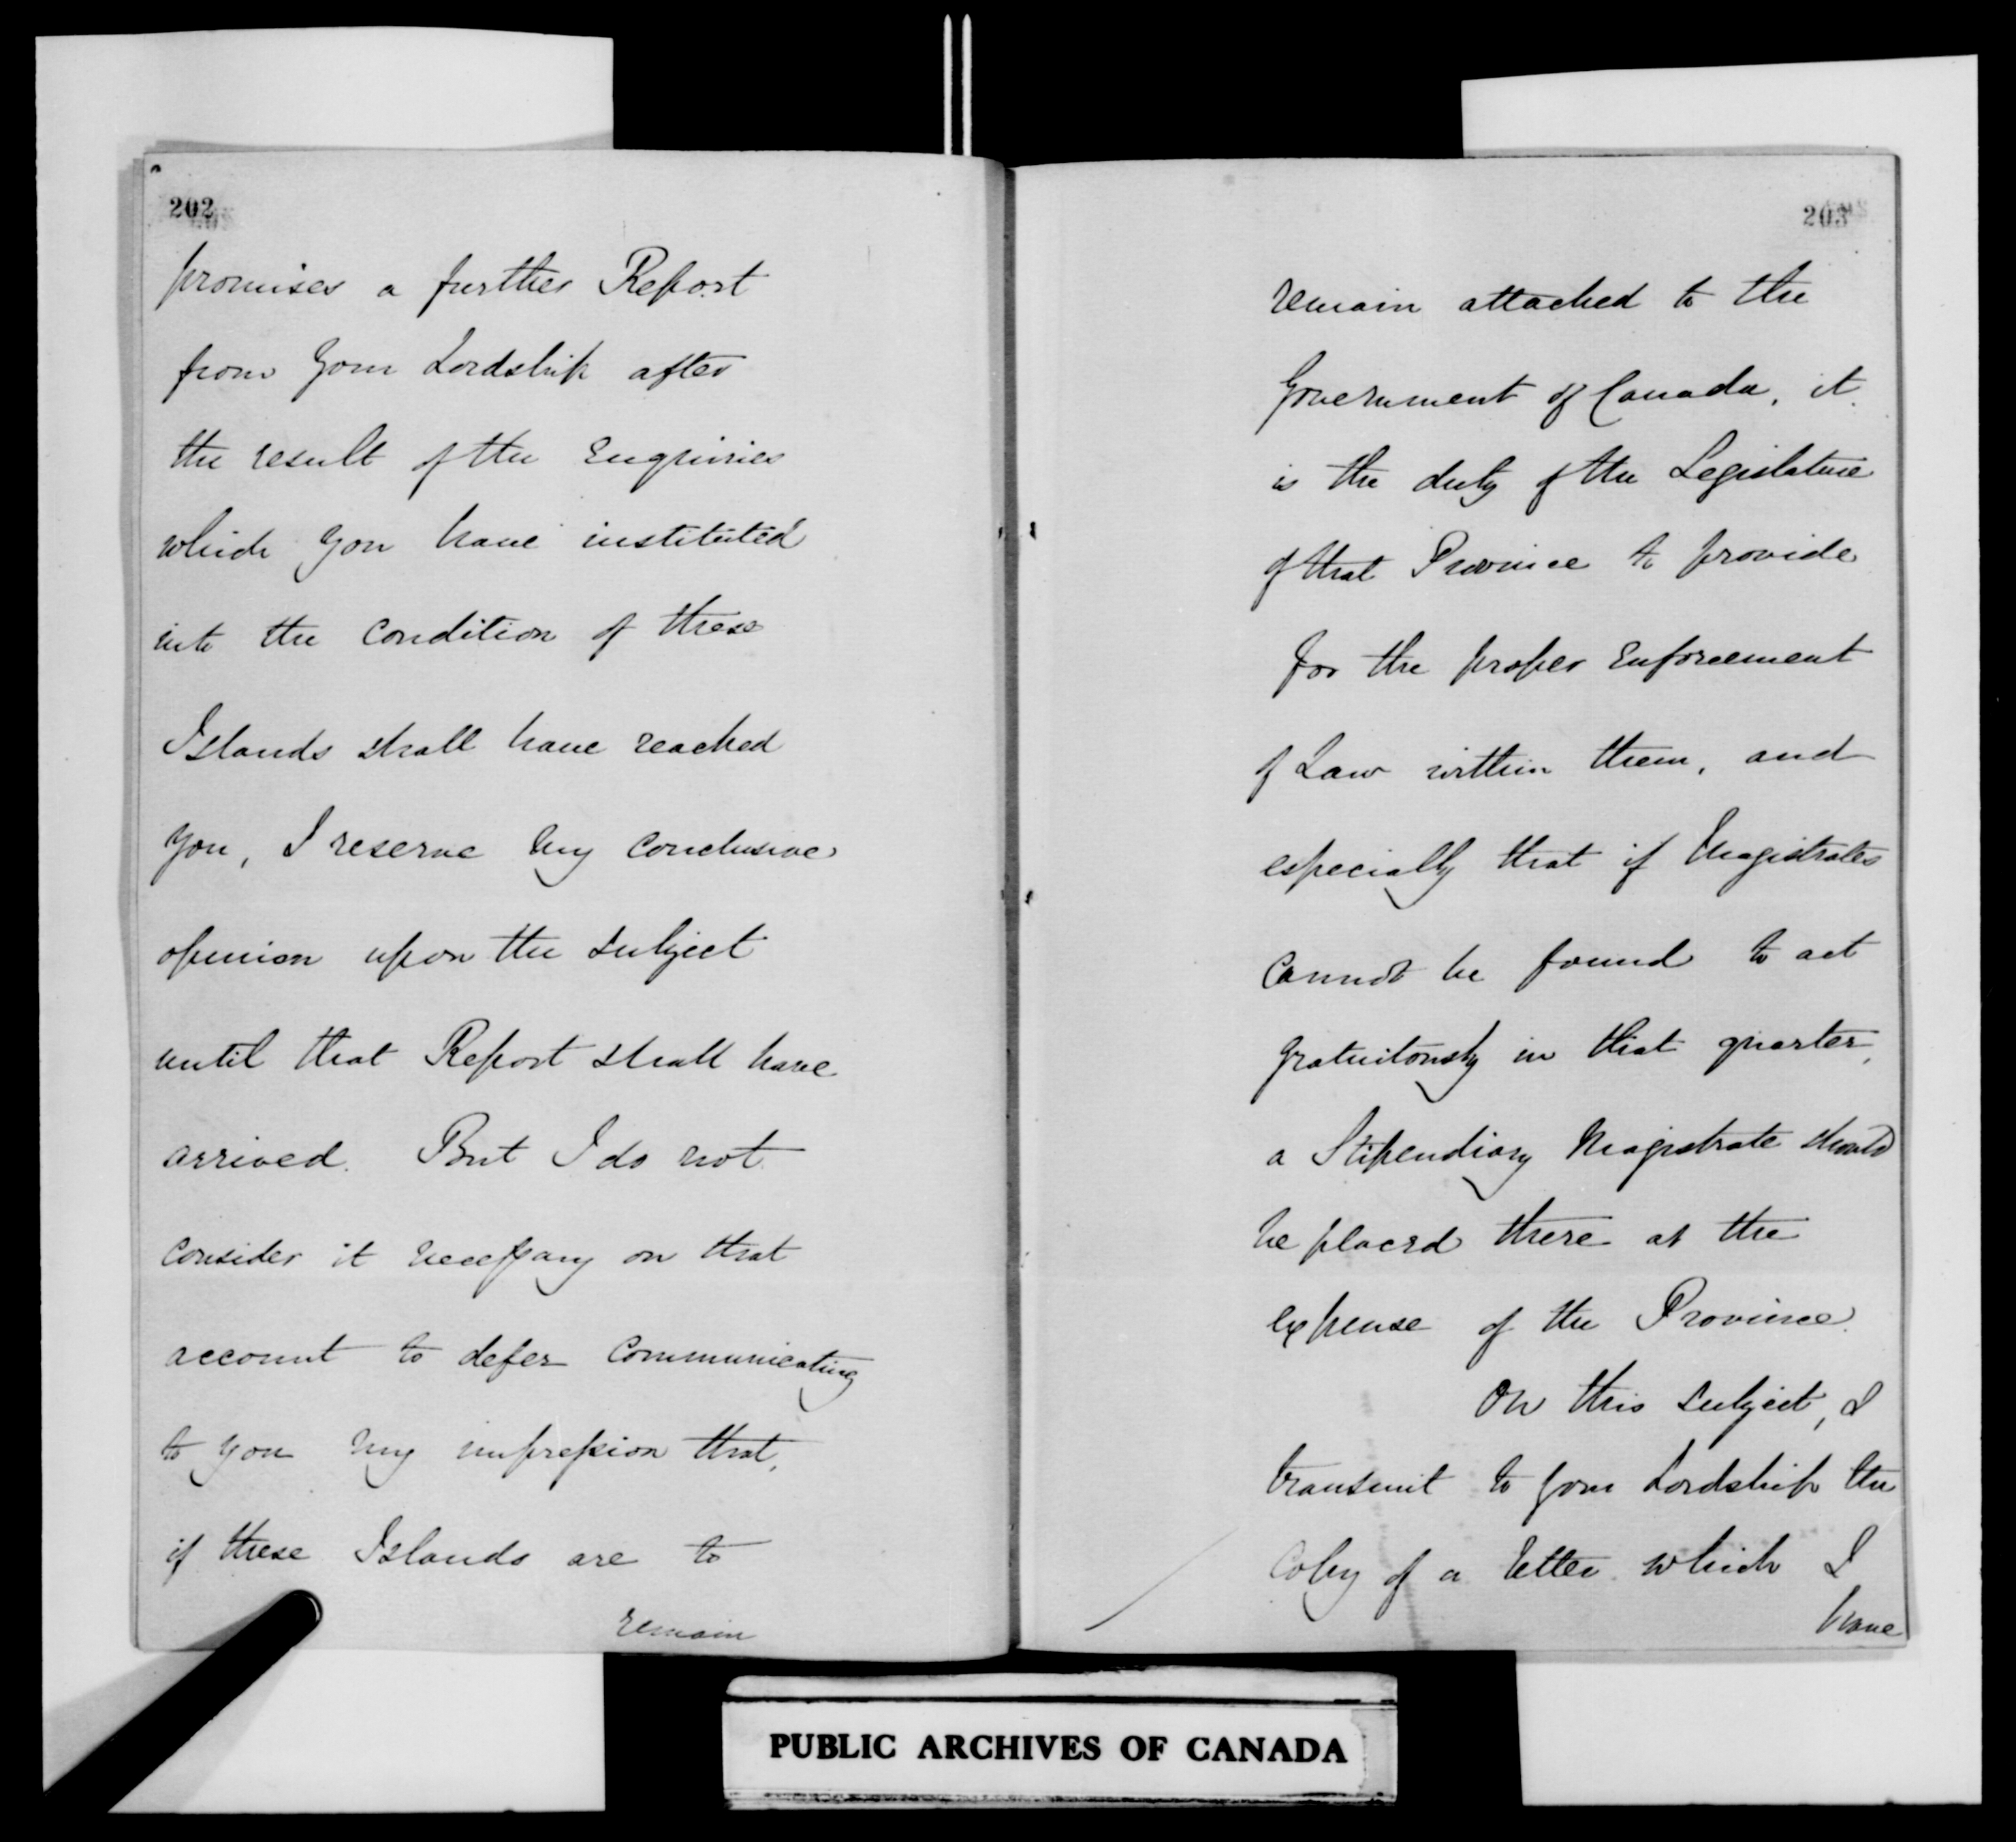 202
promises a further Report
from Your Lordship after
the result of the Enquiries
which you have instituted
into the condition of these
Islands shall have reached
you, I reserve my conclusive
opinion upon the subject
until that Report shall have
arrived. But I do not
consider it necessary on that
account to defer communicating
to you my impression that,
if these Islands are to
remain
203
remain attached to the
Government of Canada, it
is the duty of the Legislature
of that Province to provide
for the proper Enforcement
of Law within them, and
especially that if Magistrates
cannot be found to act
gratuitously in that quarter,
a Stipendiary Magistrate should
be placed there at the
expense of the Province.
On this subject, I
transmit to your Lordship the
Copy of a letter which I
have
PUBLIC ARCHIVES OF CANADA